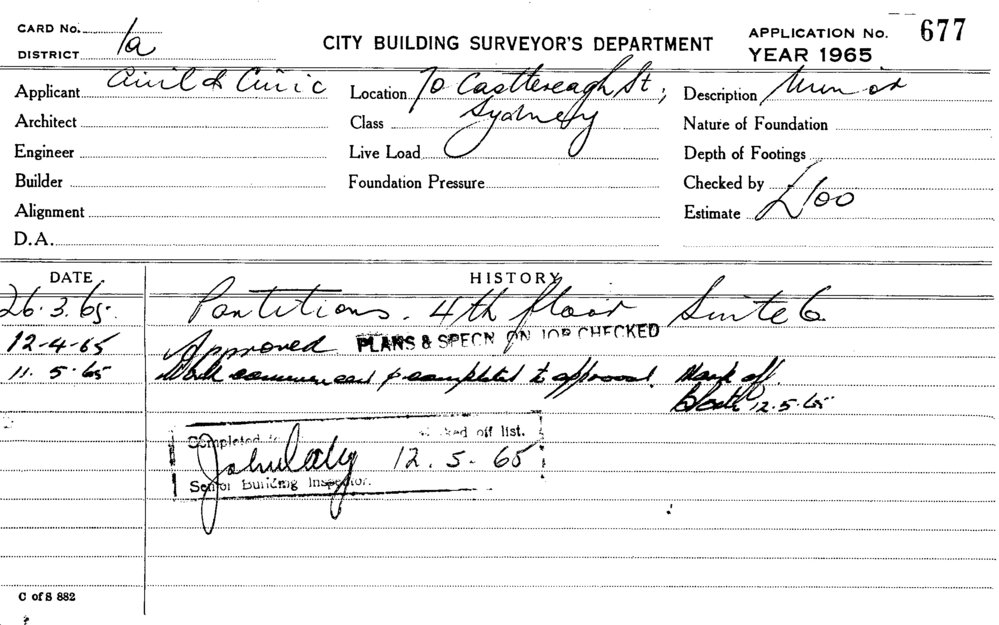 CARD No.
DISTRICT 1a
CITY BUILDING SURVEYOR'S DEPARTMENT
APPLICATION No. 677
YEAR 1965
Applicant Civil & Civic
Location 70 Castlereagh St, Sydney
Description Minor
Architect
Class
Nature of Foundation
Engineer
Live Load
Depth of Footings
Builder
Foundation Pressure
Checked by
Alignment
Estimate £100
D.A.
DATE HISTORY
26.3.65. Partitions. 4th floor Suite 6
12-4-65 Approved PLANS & SPECN ON JOB CHECKED
11.5.65 Work commenced & completed to approval. Mark off
12.5.65
Completed ked off list.
John Daly 12.5.65
Senior Building Inspector.
C of S 882